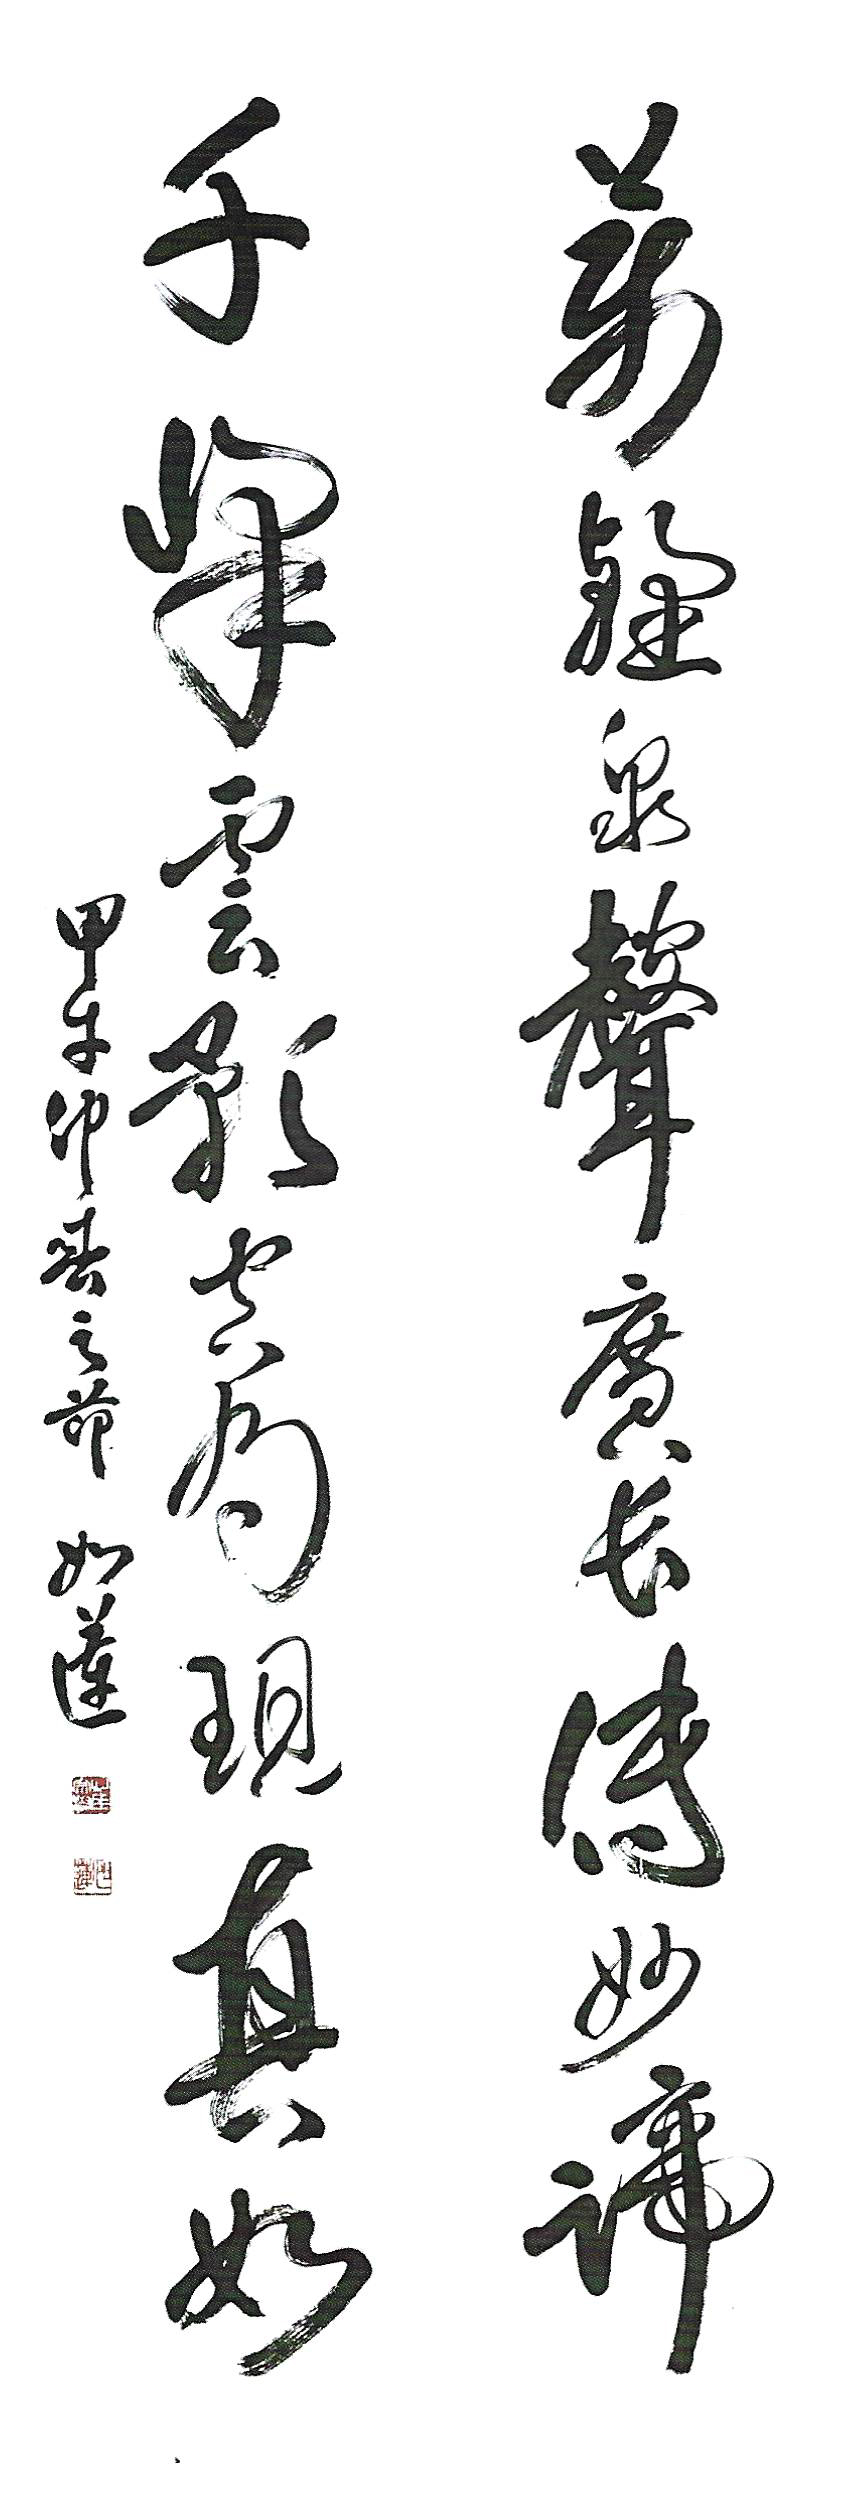 萬壑泉聲廣長傳妙諦
千峰雲影空現真如
甲午仲春之節 如蓮